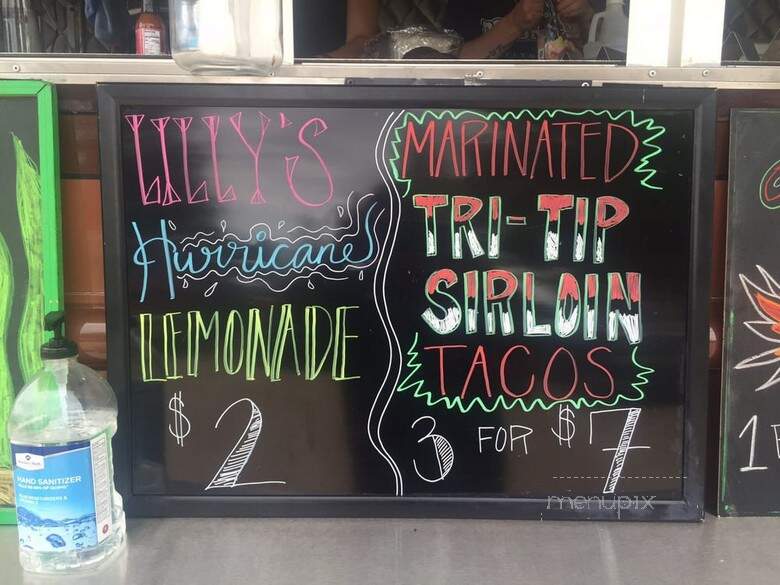 LILLY'S
Hurricane
LEMONADE
$2
MARINATED
TRI-TIP
SIRLOIN
TACOS
3 FOR $7
HAND SANITIZER
menupix
1